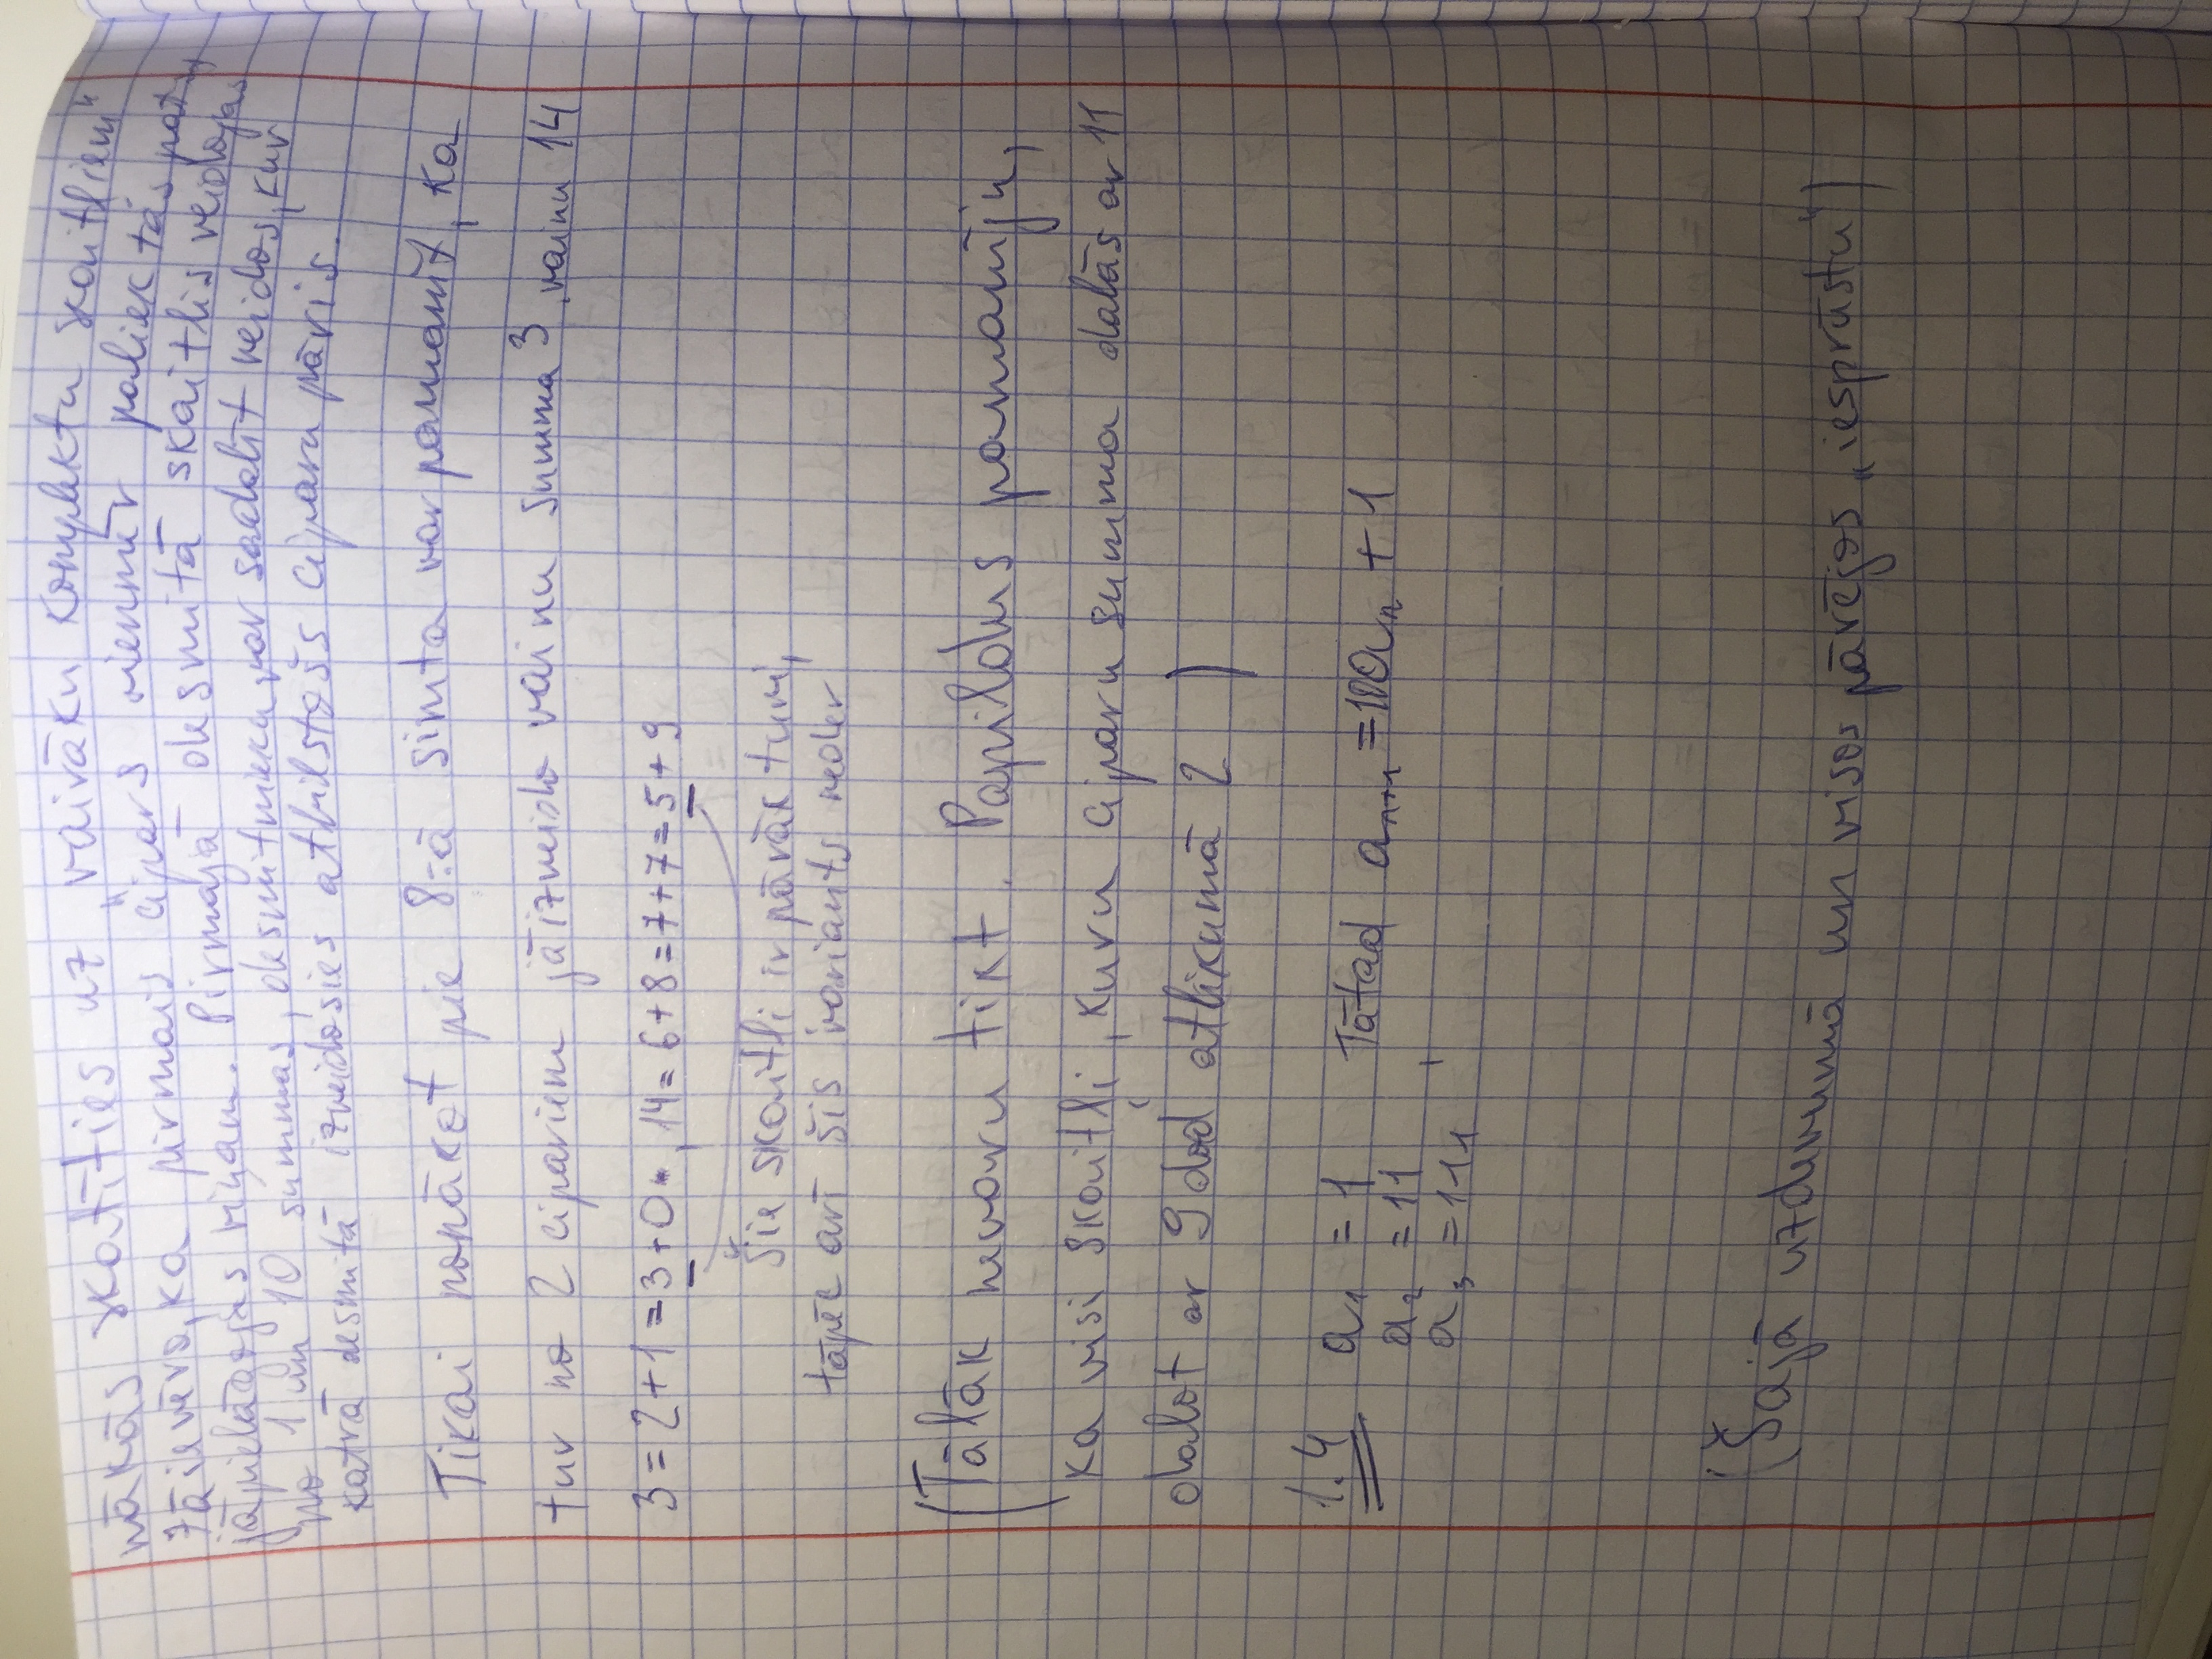 nākās skatīties uz "vairāku komplektu skaitļiem"
Jāievēro, ka pirmais cipars vienmēr paliek tās pats,
jāpielāgojas viņam. Pirmajā desmitā skaitlis veidojas
no 1 un 10 summas, desmitnieku var sadalīt veidos, kur
katrā desmitā izveidosies atbilstošs ciparu pāris.
Tikai nonākot pie 8-ā simta var pamanīt, ka
tur no 2 cipariem jāizveido vai nu summa 3 vai nu 14
3 = 2+1 = 3+0, 14 = 6+8 = 7+7 = 5+9
Šie skaitļi ir pārāk tuvi,
tāpēc arī šis variants neder
(Tālāk nevaru tikt. Papildus pamanīju,
ka visi skaitļi, kuru ciparu summa dalās ar 11
dalot ar 9 dod atlikumā 2)
1.4 a₁ = 1 Tātad aₙ₊₁ = 10aₙ + 1
a₂ = 11
a₃ = 111,
(Šajā uzdevumā un visos pārējos „iesprūstu")